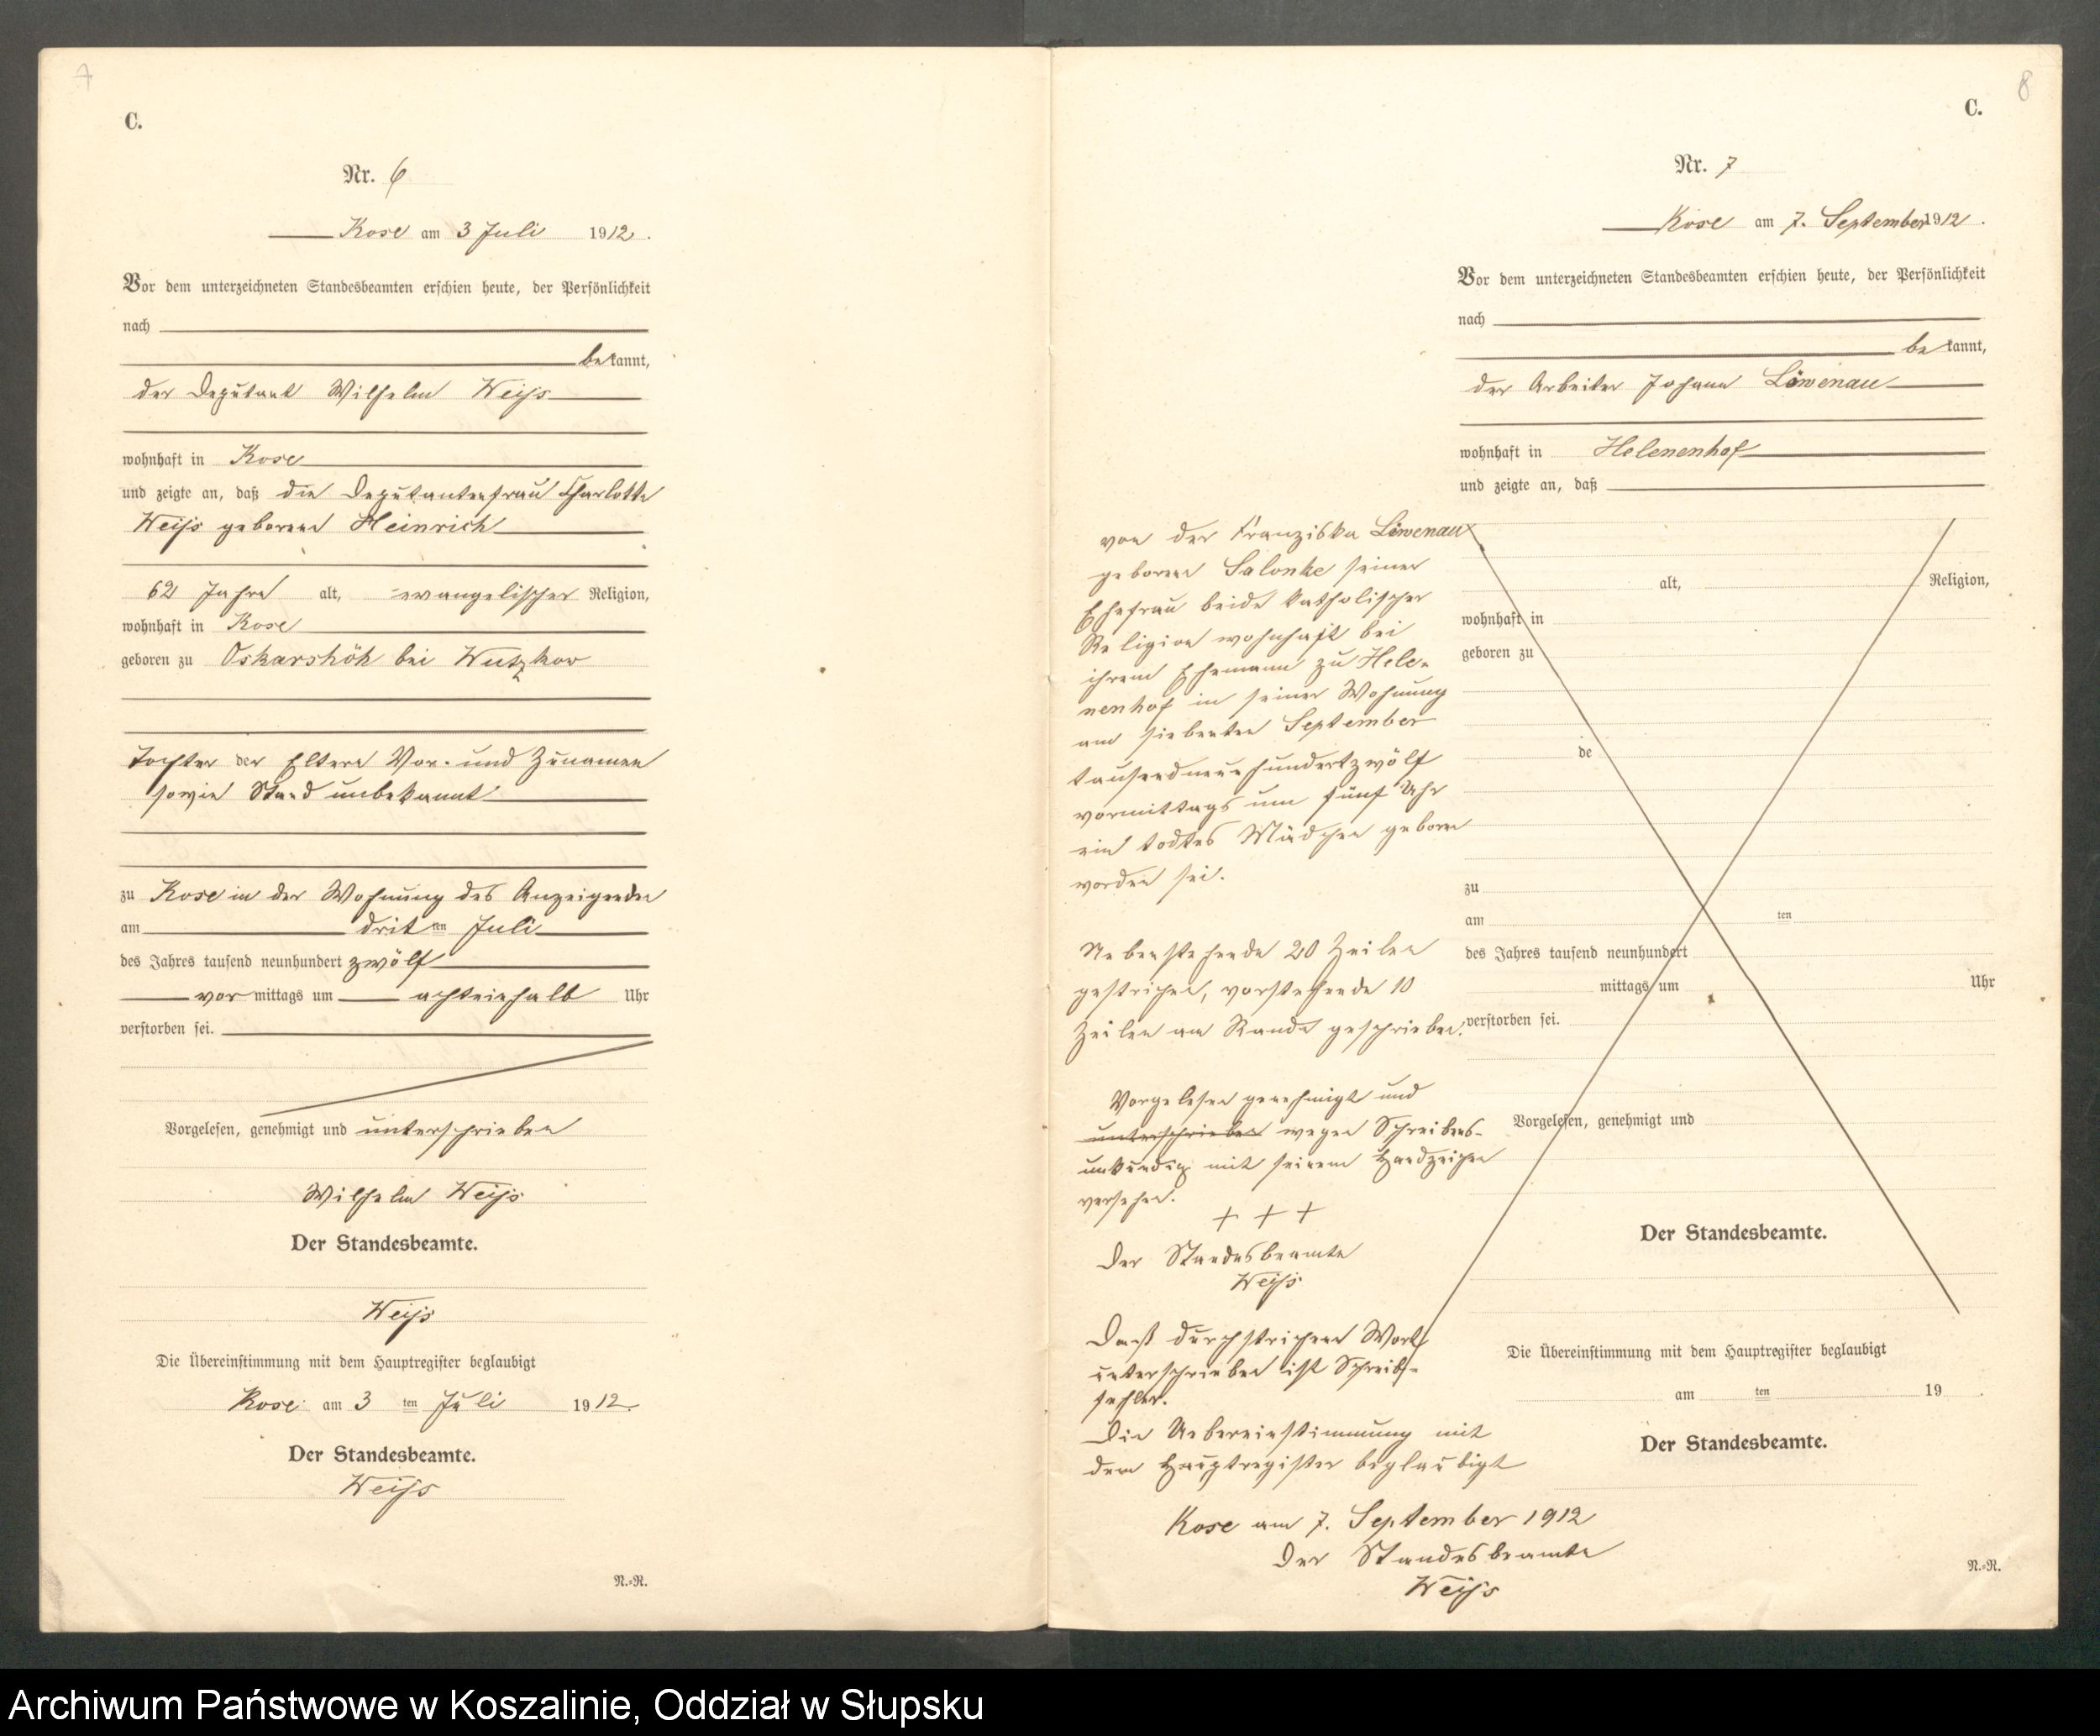 7
C.
Nr. 6
Kose am 3 Juli 1912.
Vor dem unterzeichneten Standesbeamten erschien heute, der Persönlichkeit
nach
bekannt,
der Deputant Wilhelm Weiss
wohnhaft in Kose
und zeigte an, daß die Deputantenfrau Charlotte
Weiss geborene Heinrich
62 Jahre alt, evangelischer Religion,
wohnhaft in Kose
geboren zu Oskarshöh bei Wutzkow
Tochter der Eltern Vor- und Zunamen
sowie Stand unbekannt
zu Kose in der Wohnung des Anzeigenden
am dritten Juli
des Jahres tausend neunhundert zwölf
vormittags um achteinhalb Uhr
verstorben sei.
Vorgelesen, genehmigt und unterschrieben
Wilhelm Weiss
Der Standesbeamte.
Weiss
Die Übereinstimmung mit dem Hauptregister beglaubigt
Kose am 3 ten Juli 1912.
Der Standesbeamte.
Weiss
N.=R.
8
C.
Nr. 7
Kose am 7. September 1912.
Vor dem unterzeichneten Standesbeamten erschien heute, der Persönlichkeit
nach
bekannt,
der Arbeiter Johann Löwenau
wohnhaft in Helenenhof
und zeigte an, daß
von der Franziska Löwenau
geborene Salonke seiner
Ehefrau beide katholischer
Religion wohnhaft bei
ihrem Ehemann zu Hele-
nenhof in seiner Wohnung
am siebenten September
tausendneunhundertzwölf
vormittags um fünf Uhr
ein todtes Mädchen geboren
worden sei.
Nebenstehende 20 Zeilen
gestrichen, vorstehende 10
Zeilen am Rande geschrieben.
Vorgelesen genehmigt und
unterschrieben wegen Schreibens-
unkundig mit seinem Handzeichen
versehen.
+ + +
Der Standesbeamte
Weiss
Daß durchstrichene Wort
unterschrieben ist Schreib-
fehler.
Die Uebereinstimmung mit
dem Hauptregister beglaubigt
Kose am 7. September 1912
Der Standesbeamte
Weiss
alt, Religion,
wohnhaft in
geboren zu
de
zu
am ten
des Jahres tausend neunhundert
mittags um Uhr
verstorben sei.
Vorgelesen, genehmigt und
Der Standesbeamte.
Die Übereinstimmung mit dem Hauptregister beglaubigt
am ten 19 .
Der Standesbeamte.
N.=R.
Archiwum Państwowe w Koszalinie, Oddział w Słupsku